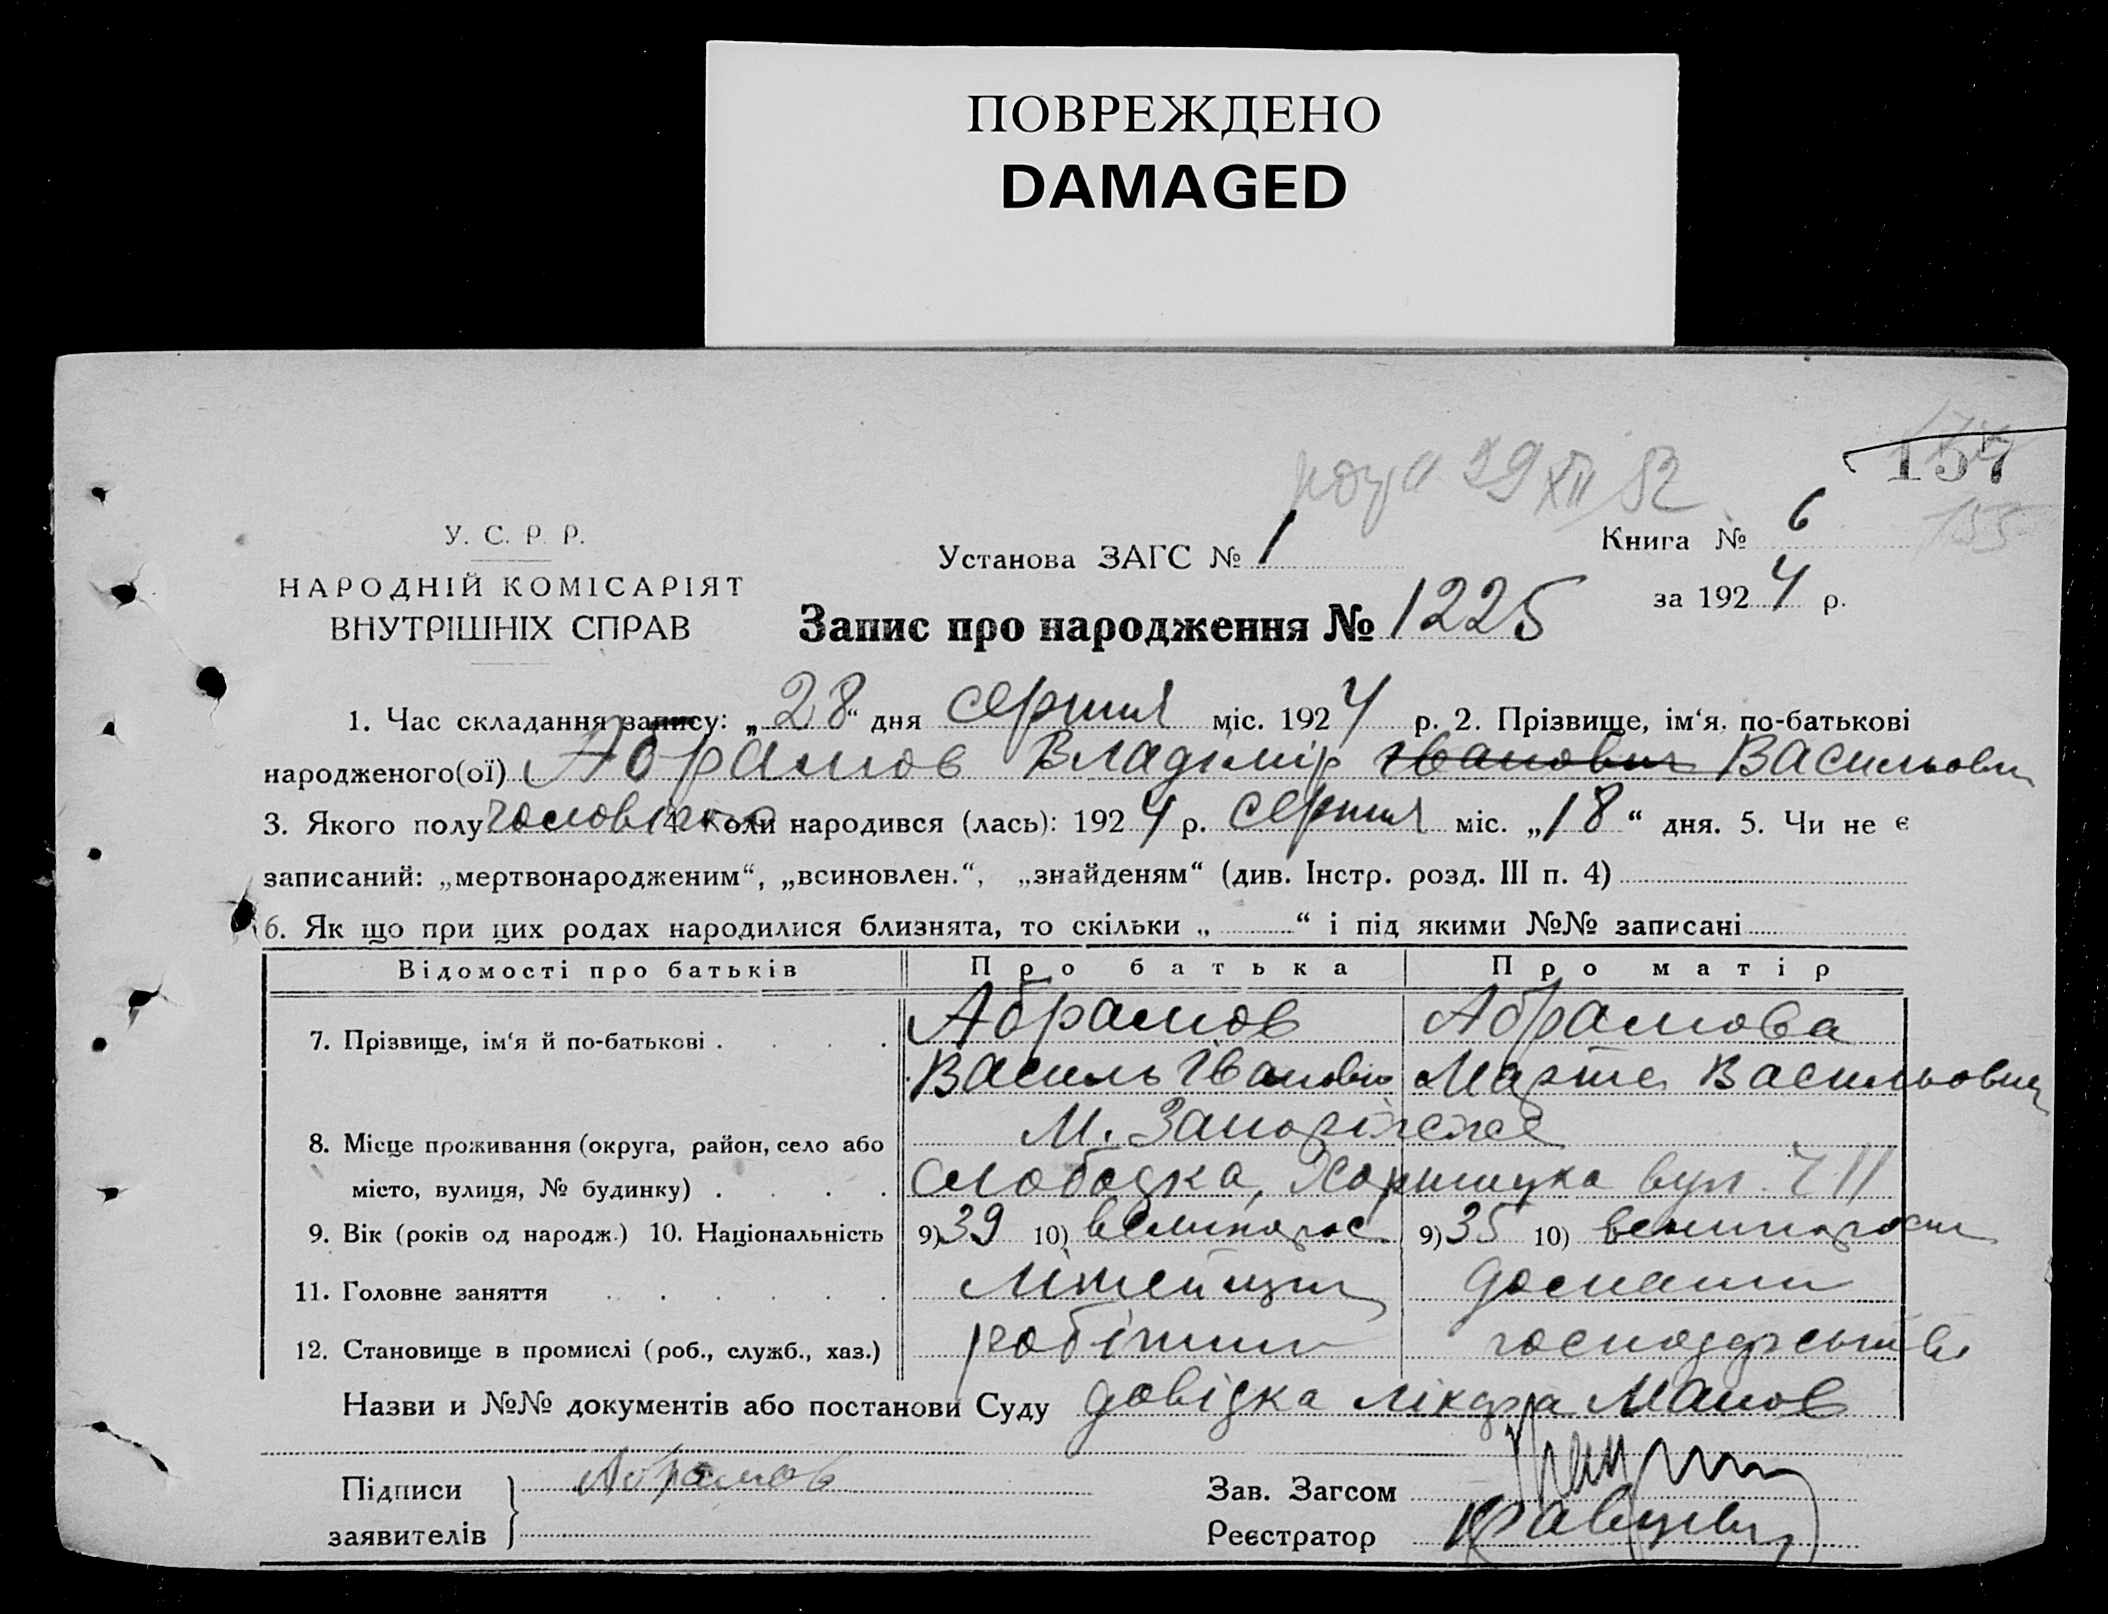 ПОВРЕЖДЕНО
DAMAGED
29 XII 52
157
155
У. С. Р. Р.
НАРОДНІЙ КОМІСАРІЯТ
ВНУТРІШНІХ СПРАВ
Установа ЗАГС № 1
Книга № 6
за 1924 р.
Запис про народження № 1225
1. Час складання запису: „28“ дня серпня міс. 1924 р. 2. Прізвище, ім‘я, по-батькові
народженого(ої) Абрамов Владімір Іванович Васильович
3. Якого полу чоловічого 4. Коли народився (лась): 1924 р. серпня міс. „18“ дня. 5. Чи не є
записаний: „мертвонародженим“, „всиновлен.“, „знайденям“ (див. Інстр. розд. III п. 4)
6. Як що при цих родах народилися близнята, то скільки „ “ і під якими №№ записані
Відомості про батьків Про батька Про матір
7. Прізвище, ім‘я й по-батькові Абрамов Абрамова
Василь Іванович Марта Васильовна
8. Місце проживання (округа, район, село або М. Запоріжжє
місто, вулиця, № будинку) Слободка, вул. 711
9. Вік (років од народж.) 10. Національність 9) 39 10) великорос 9) 35 10)
11. Головне заняття Литейщик домашн
12. Становище в промислі (роб., служб., хаз.) робітник господарство
Назви и №№ документів або постанови Суду довідка лікаря
Підписи Абрамов
заявителів
Зав. Загсом
Реєстратор